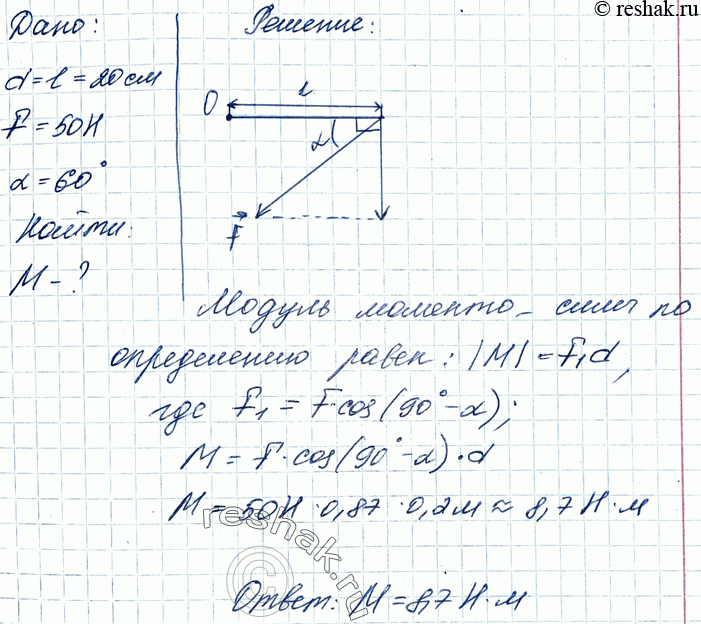 © reshak.ru
Дано:
d = l = 20 см
F = 50 Н
α = 60°
Найти:
M - ?
Решение:
O
l
α
F
Модуль моменто силы по
определению равен: |M| = F₁d,
где F₁ = F·cos(90° - α);
M = F·cos(90° - α)·d
M = 50Н · 0,87 · 0,2м ≈ 8,7 Н·м
reshak.ru
©
Ответ: M = 8,7 Н·м